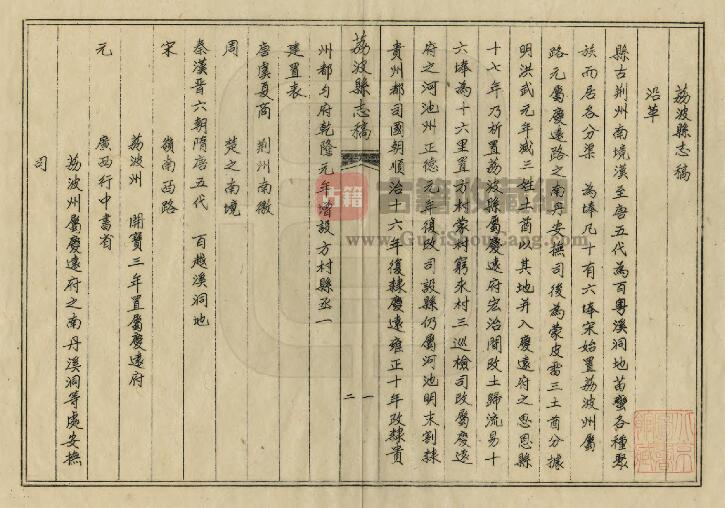 荔波縣志稿
沿革
縣古荆州南境漢至唐五代為百粤溪洞地苗蠻各種聚
族而居各分渠 為埲凡十有六埲宋始置荔波州屬
路元屬慶遠路之南丹安撫司後為蒙皮雷三土酋分據
明洪武元年滅三姓土酋以其地并入慶遠府之思恩縣
十七年乃析置荔波縣屬慶遠府宏治間改土歸流易十
六埲為十六里置方村蒙村窮來村三巡檢司改屬慶遠
府之河池州正德元年復改司設縣仍屬河池明末割隸
貴州都司國朝順治十六年復隸慶遠雍正十年改隸貴
荔波縣志稿
一
二
州都勻府乾隆元年增設方村縣丞一
建置表
唐虞夏商 荆州南徼
周 楚之南境
秦漢晉六朝隋唐五代 百越溪洞地
宋 嶺南西路
荔波州 開寶三年置屬慶遠府
元 廣西行中書省
荔波州屬慶遠府之南丹溪洞等處安撫
司
古籍
古籍收藏網
www.GuJiShouCang.com